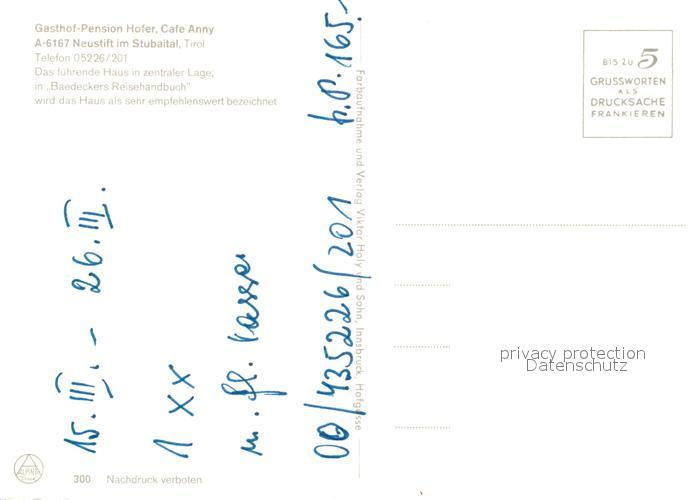 Gasthof-Pension Hofer, Cafe Anny
A-6167 Neustift im Stubaital, Tirol
Telefon 05226/201
Das führende Haus in zentraler Lage;
in „Baedeckers Reisehandbuch"
wird das Haus als sehr empfehlenswert bezeichnet
BIS ZU 5
GRUSSWORTEN
ALS
DRUCKSACHE
FRANKIEREN
15. III. - 26. III.
1 XX
m. fl. Wasser
00/435226/201 h.P. 165.-
Farbaufnahme und Verlag Viktor Holy und Sohn, Innsbruck, Hofgasse
privacy protection
Datenschutz
ALPINA
300 Nachdruck verboten